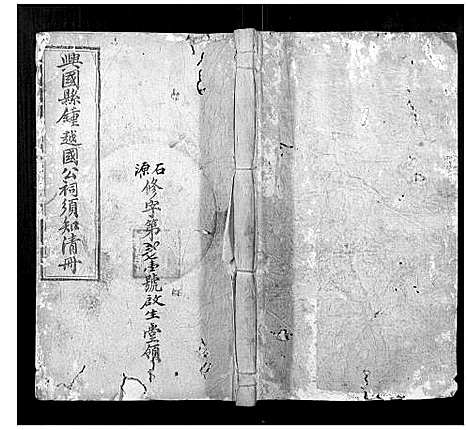 興國縣鍾越國公祠須知清冊
石源
修字第 壹號啟生堂領